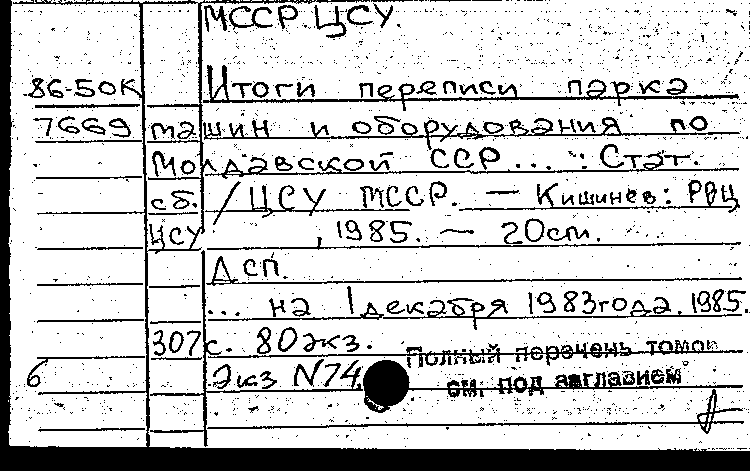 МССР. ЦСУ.
86-50К Итоги переписи парка
7669 машин и оборудования по
Молдавской ССР... : Стат.
сб. / ЦСУ МССР. — Кишинев: РВЦ
ЦСУ, 1985. — 20см.
Дсп.
... на 1 декабря 1983 года. 1985.
307 с. 80 экз.
Полный перечень томов
6 Экз N74
см. под заглавием